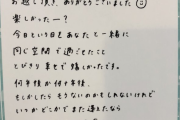 お越し頂き、ありがとうございました
楽しかったー?
今日という日をあなたと一緒に
同じ空間で過ごせたこと
とびきり幸せで嬉しかったです。
何年後か何十年後、
もしかしたらもうないのかもしれないけれど
いつかどこかでまた逢えたなら